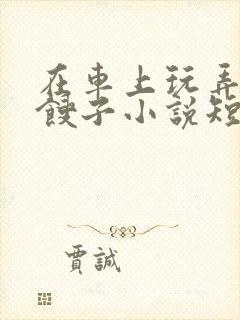 在車上玩弄
餿子小說短
賈誠